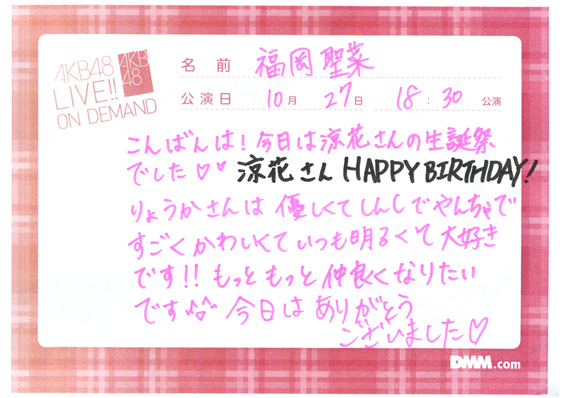 AKB48
LIVE!!
ON DEMAND
AKB
48
名前 福岡聖菜
公演日 10月 27日 18:30 公演
こんばんは!今日は涼花さんの生誕祭
でした♡♡ 涼花さん HAPPY BIRTHDAY!
りょうかさんは 優しくてしんしでやんちゃで
すごくかわいくていつも明るくて大好き
です!!もっともっと仲良くなりたい
です 今日は ありがとう
ございました♡
DMM.com